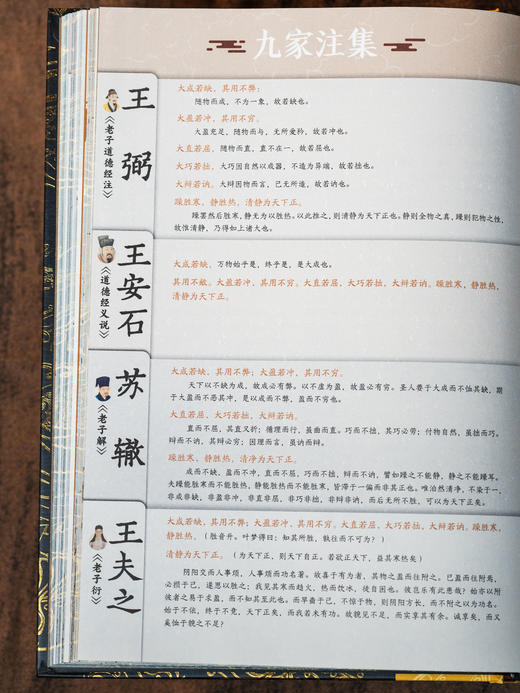 九家注集
王弼
《老子道德经注》
大成若缺，其用不弊：
随物而成，不为一象，故若缺也。
大盈若冲，其用不穷。
大盈充足，随物而与，无所爱矜，故若冲也。
大直若屈，随物而直，直不在一，故若屈也。
大巧若拙，大巧因自然以成器，不造为异端，故若拙也。
大辩若讷，大辩因物而言，己无所造，故若讷也。
躁胜寒，静胜热，清静为天下正。
躁罢然后胜寒，静无为以胜热。以此推之，则清静为天下正也。静则全物之真，躁则犯物之性，
故惟清静，乃得如上诸大也。
王安石
《道德经义说》
大成若缺，万物始乎是，终乎是，是大成也。
其用不敝。大盈若冲，其用不穷。大直若屈，大巧若拙，大辩若讷。躁胜寒，静胜热，
清静为天下正。
苏辙
《老子解》
大成若缺，其用不弊；大盈若冲，其用不穷。
天下以不缺为成，故成必有弊。以不虚为盈，故盈必有穷。圣人要于大成而不恤其缺，期
于大盈而不恶其冲，是以成而不弊，盈而不穷也。
大直若屈，大巧若拙，大辩若讷。
直而不屈，其直又折；循理而行，虽曲而直。巧而不拙，其巧必劳；付物自然，虽拙而巧。
辩而不讷，其辩必穷；因理而言，虽讷而辩。
躁胜寒，静胜热，清净为天下正。
成而不缺，盈而不冲，直而不屈，巧而不拙，辩而不讷，譬如躁之不能静，静之不能躁耳。
夫躁能胜寒而不能胜热，静能胜热而不能胜寒，皆滞于一偏而非其正也。唯泊然清净，不染于一，
非成非缺，非盈非冲，非直非屈，非巧非拙，非辩非讷，而后无所不胜，可以为天下正矣。
王夫之
《老子衍》
大成若缺，其用不弊；大盈若冲，其用不穷。大直若屈，大巧若拙，大辩若讷。躁胜寒，
静胜热，（胜音升。叶梦得曰：知其所胜，孰往而不可为？）
清静为天下正。（为天下正，则天下自正。若欲正天下，益其寒热矣）
阴阳交而人事烦，人事烦而功名著。故喜于有为者，其物之盈而往附之。已盈而往附焉，
必损于己，遑思以胜之；我见其寒而趋火，热而饮冰，徒自困也。彼岂乐有此患哉？始亦以附
彼者之易于求盈，而不知其至此也。而早啬于己，不惊于物，则阴阳方长，而不附之以为功名。
始于不依，终于不竞，天下正矣，而我若未有功。故貌见不足，而实享其有余。诚享矣，而又
奚恤于貌之不足？